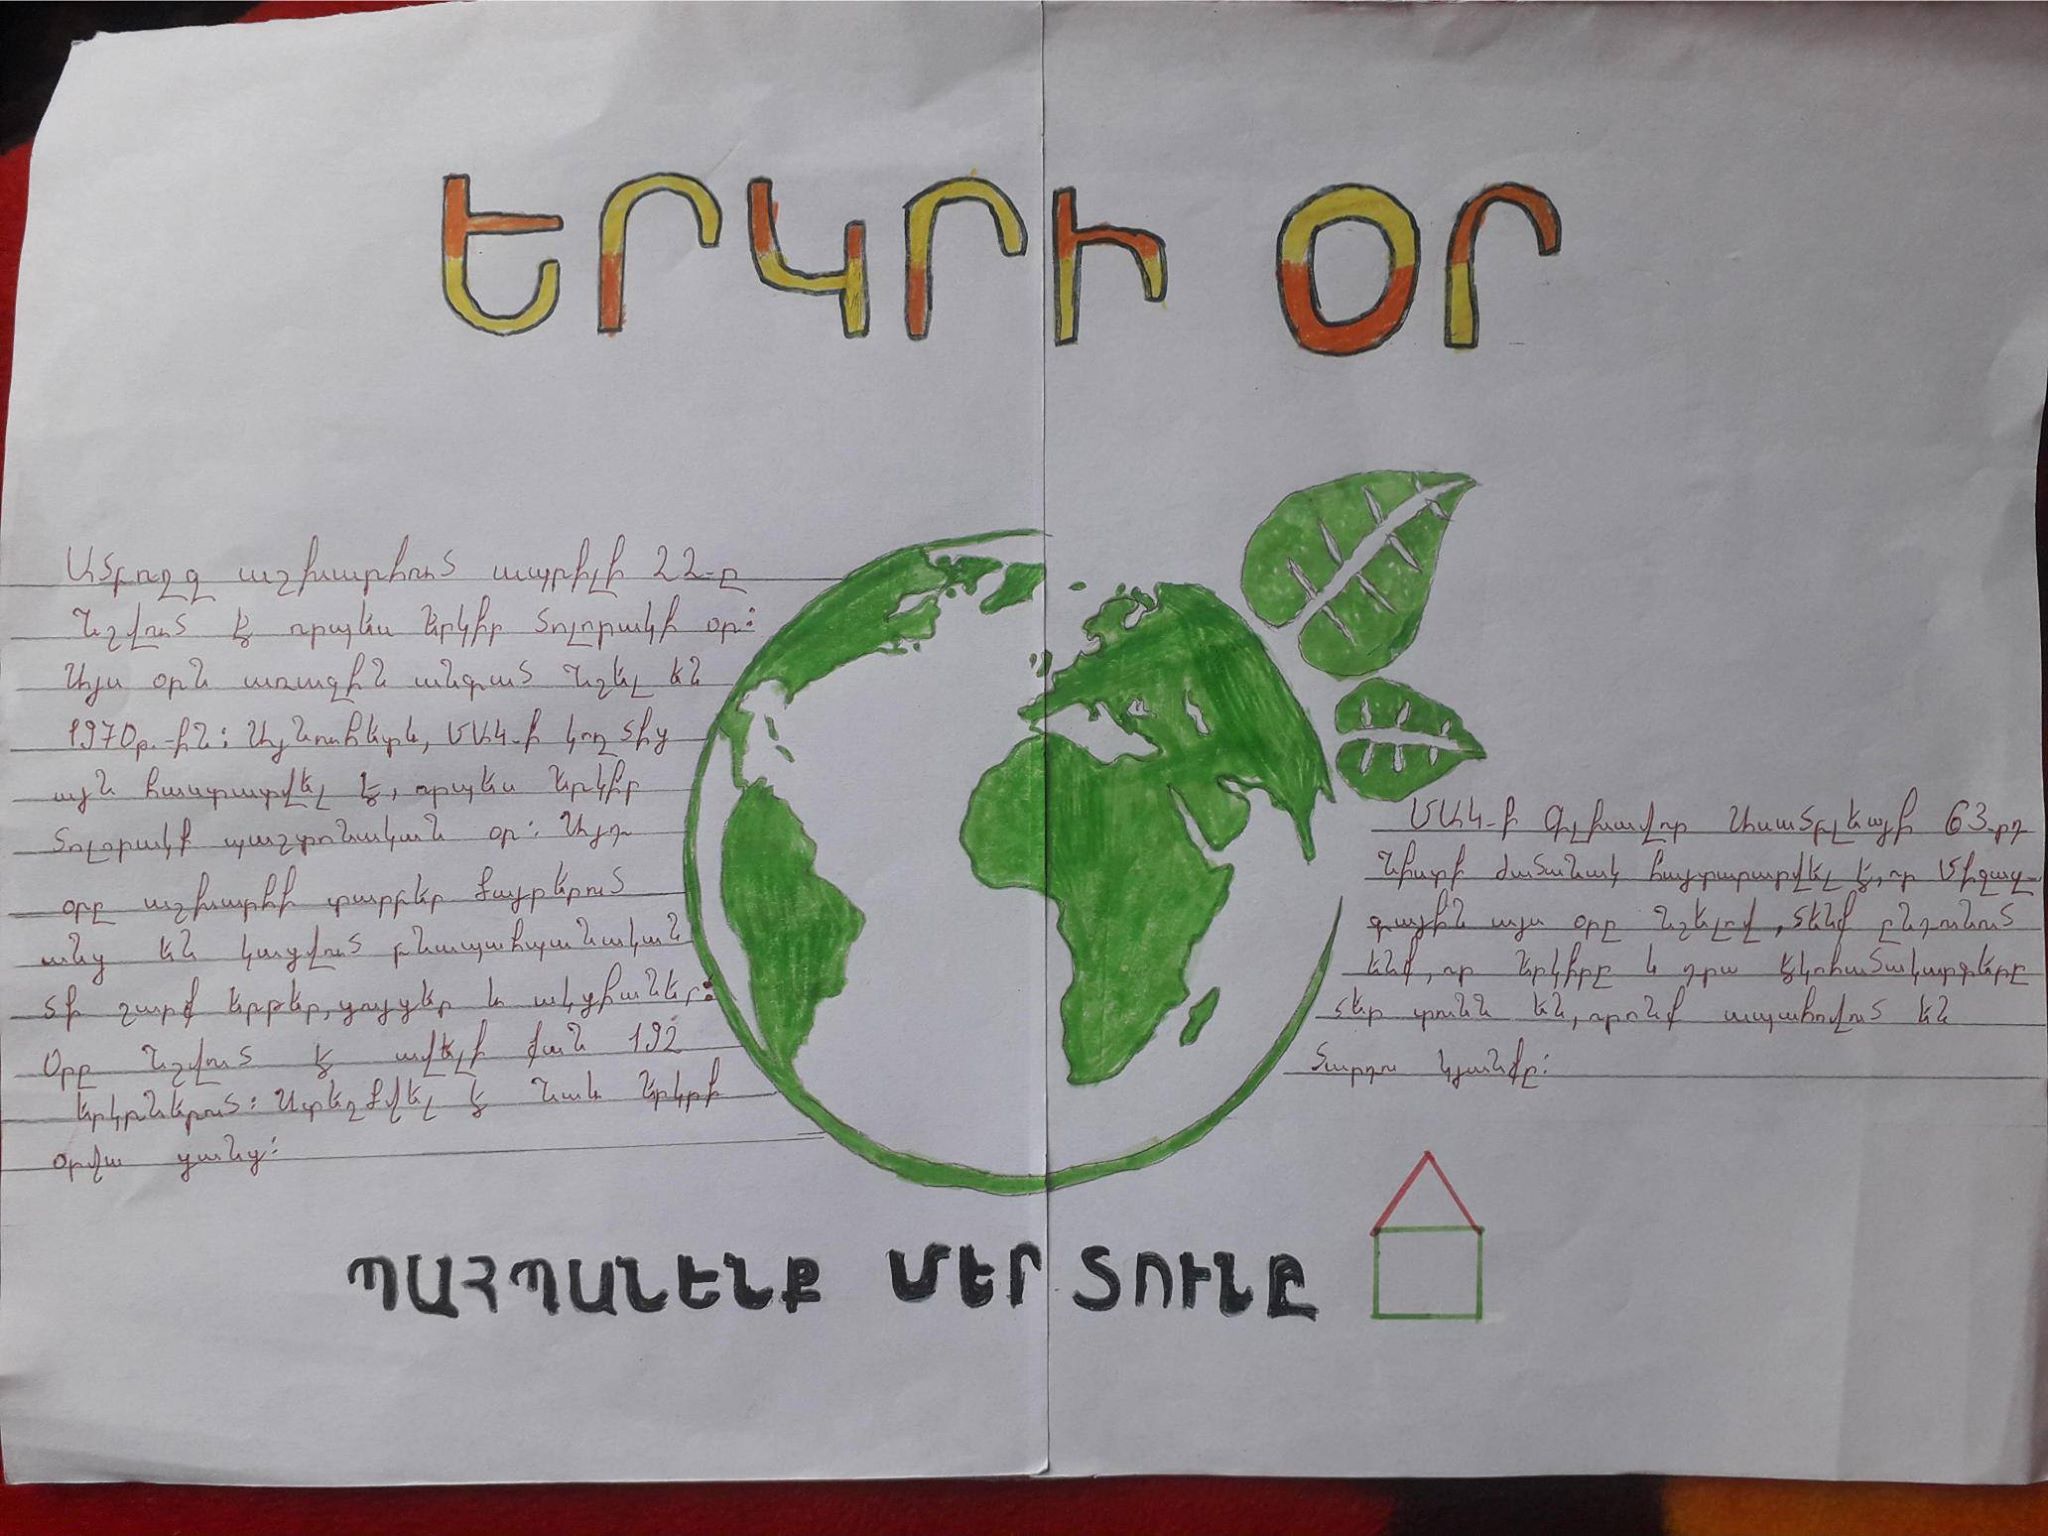 ԵՐԿՐԻ ՕՐ
Ամբողջ աշխարհում ապրիլի 22-ը
նշվում է որպես Երկիր մոլորակի օր:
Այս օրն առաջին անգամ նշել են
1970թ.-ին: Այնուհետև, ՄԱԿ-ի կողմից
այն հաստատվել է, որպես Երկիր
մոլորակի պաշտոնական օր: Այդ
օրը աշխարհի տարբեր ծայրերում
անց են կացվում բնապահպանական
մի շարք երթեր, ցույցեր և ակցիաներ:
Օրը նշվում է ավելի քան 192
երկրներում: Ստեղծվել է նաև Երկրի
օրվա ցանց:
ՄԱԿ-ի Գլխավոր Ասամբլեայի 63-րդ
նիստի ժամանակ հայտարարվել է, որ Միջազ-
գային այս օրը նշելով, մենք ընդունում
ենք, որ Երկիրը և դրա էկոհամակարգերը
մեր տունն են, որոնք ապահովում են
մարդու կյանքը:
ՊԱՀՊԱՆԵՆՔ ՄԵՐ ՏՈՒՆԸ